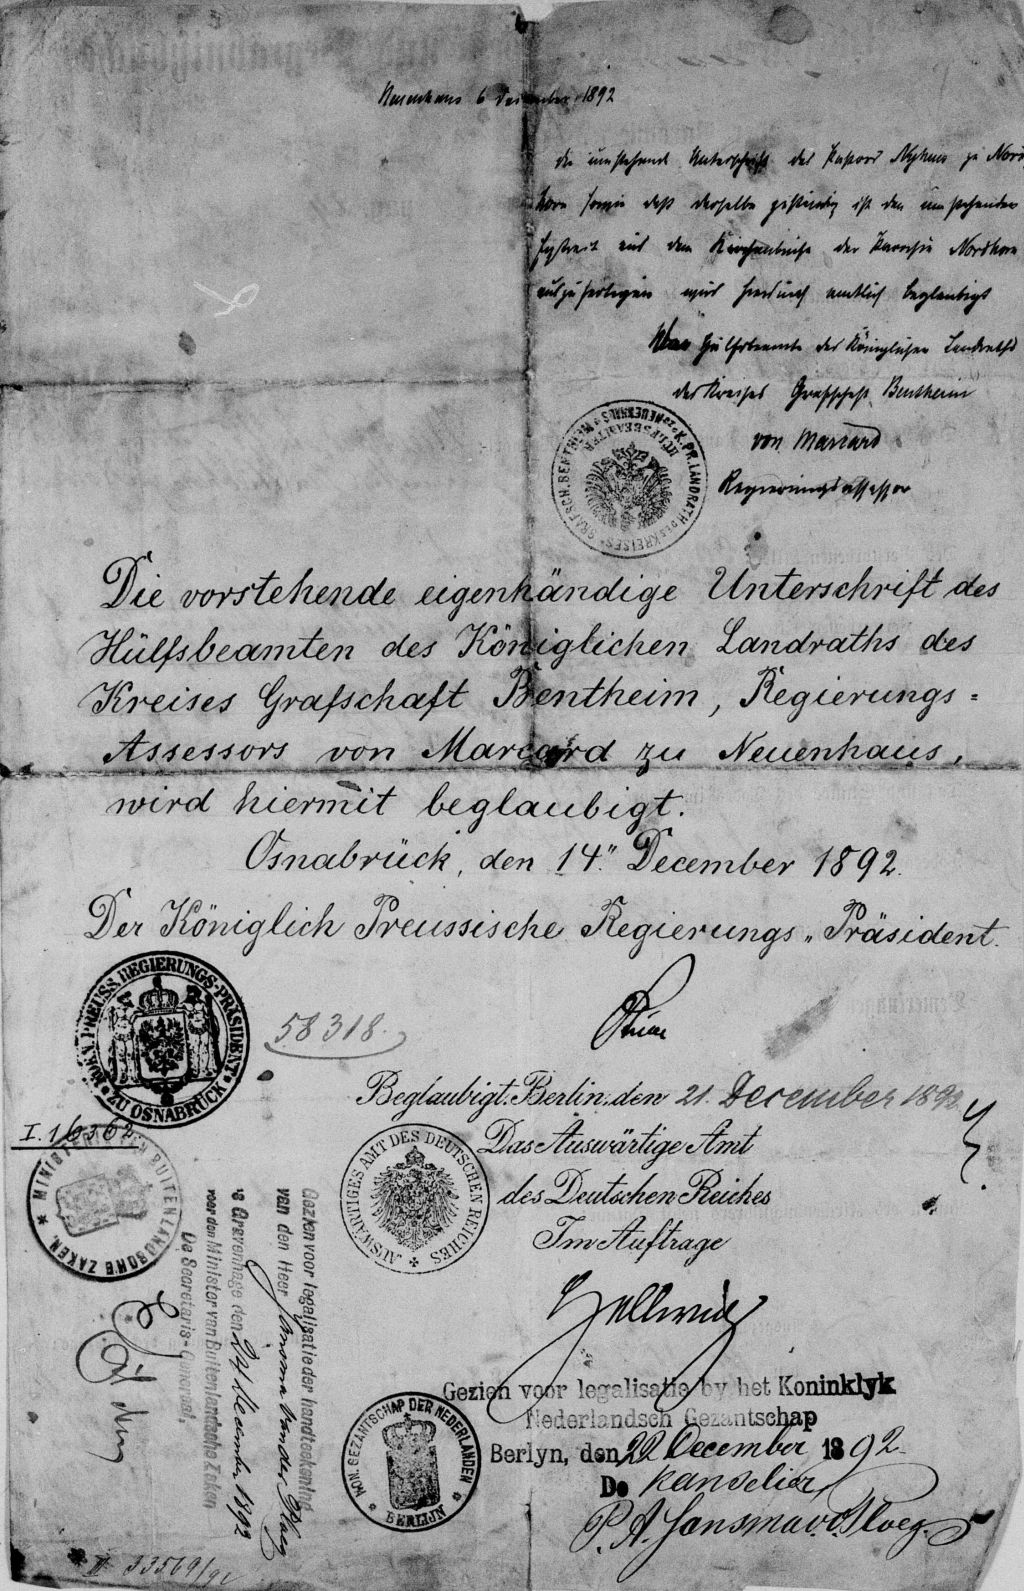 Neuenhaus 6 December 1892
die umstehende Unterschrift des Pastors Nyhuis zu Nord
horn sowie daß derselbe zuständig ist den umstehenden
aus dem Kirchenbuche der Parochie Nordhorn
auszufertigen wird hierdurch amtlich beglaubigt
Hülfsbeamte des Königlichen Landraths
des Kreises Grafschaft Bentheim
von Marcard
Regierungsassessor
K. PR. LANDRATH DES KREISES GRAFSCH. BENTHEIM ZU NEUENHAUS
HÜLFSBEAMTER
Die vorstehende eigenhändige Unterschrift des
Hülfsbeamten des Königlichen Landraths des
Kreises Grafschaft Bentheim, Regierungs=
Assessors von Marcard zu Neuenhaus,
wird hiermit beglaubigt.
Osnabrück, den 14" December 1892.
Der Königlich Preussische Regierungs„Präsident.
KOEN. PREUSS. REGIERUNGS-PRÄSIDENT
ZU OSNABRÜCK
58318.
I. 16362
Beglaubigt. Berlin, den 21. December 1892.
Das Auswärtige Amt
des Deutschen Reiches
Im Auftrage
Hellwig
AUSWÄRTIGES AMT DES DEUTSCHEN REICHES
MINISTERIE VAN BUITENLANDSCHE ZAKEN.
Gezien voor legalisatie der handteekening
van den Heer Jansma van der Ploeg
's Gravenhage den 24 December 1892
voor den Minister van Buitenlandsche Zaken
De Secretaris-Generaal,
Gezien voor legalisatie by het Koninklyk
Nederlandsch Gezantschap
Berlyn, den 22 December 1892.
De Kanselier,
P. A. Jansma v. d. Ploeg.
KON. GEZANTSCHAP DER NEDERLANDEN
BERLIJN
33569/92